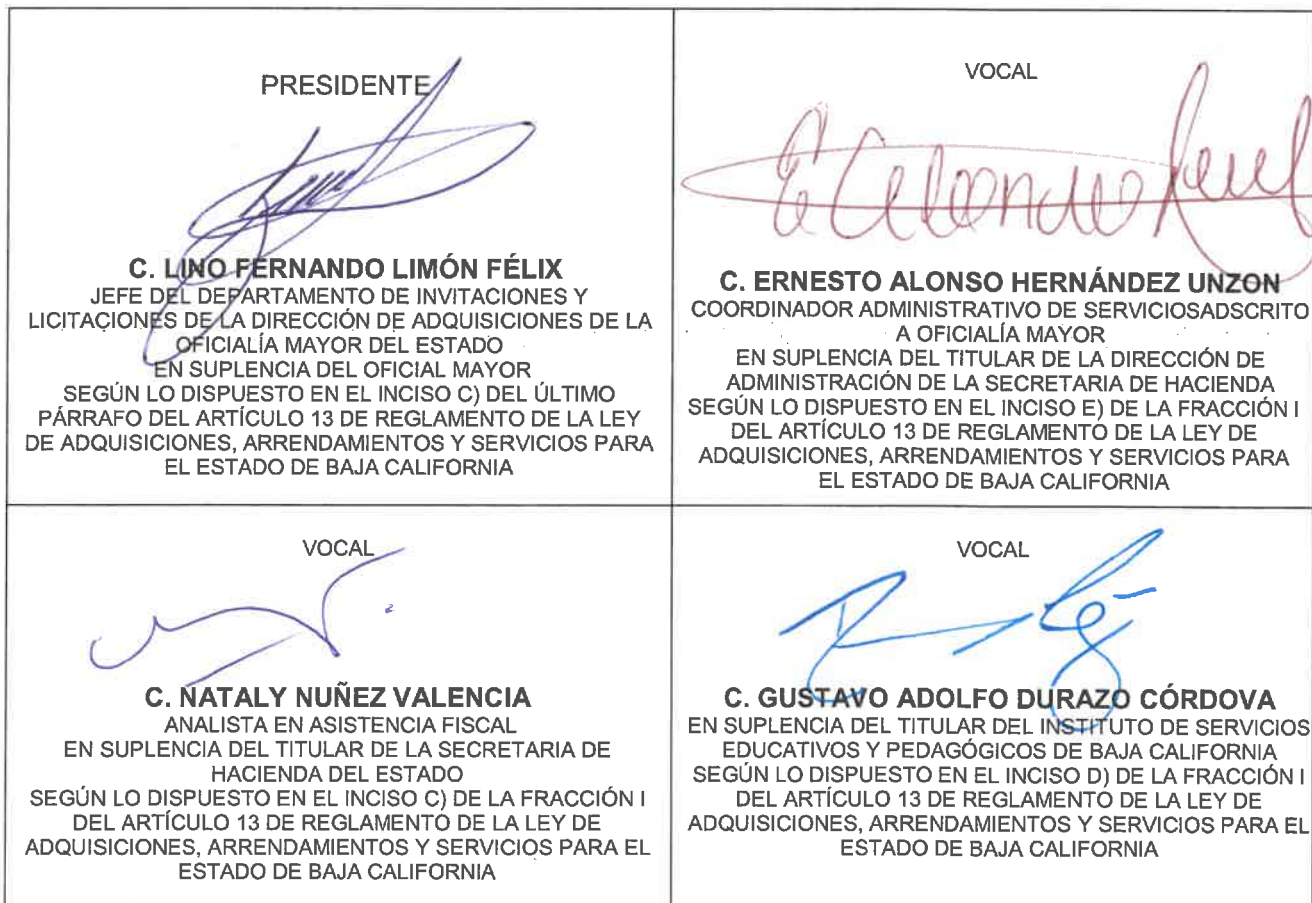 PRESIDENTE
C. LINO FERNANDO LIMÓN FÉLIX
JEFE DEL DEPARTAMENTO DE INVITACIONES Y
LICITACIONES DE LA DIRECCIÓN DE ADQUISICIONES DE LA
OFICIALÍA MAYOR DEL ESTADO
EN SUPLENCIA DEL OFICIAL MAYOR
SEGÚN LO DISPUESTO EN EL INCISO C) DEL ÚLTIMO
PÁRRAFO DEL ARTÍCULO 13 DE REGLAMENTO DE LA LEY
DE ADQUISICIONES, ARRENDAMIENTOS Y SERVICIOS PARA
EL ESTADO DE BAJA CALIFORNIA
VOCAL
C. ERNESTO ALONSO HERNÁNDEZ UNZON
COORDINADOR ADMINISTRATIVO DE SERVICIOSADSCRITO
A OFICIALÍA MAYOR
EN SUPLENCIA DEL TITULAR DE LA DIRECCIÓN DE
ADMINISTRACIÓN DE LA SECRETARIA DE HACIENDA
SEGÚN LO DISPUESTO EN EL INCISO E) DE LA FRACCIÓN I
DEL ARTÍCULO 13 DE REGLAMENTO DE LA LEY DE
ADQUISICIONES, ARRENDAMIENTOS Y SERVICIOS PARA
EL ESTADO DE BAJA CALIFORNIA
VOCAL
C. NATALY NUÑEZ VALENCIA
ANALISTA EN ASISTENCIA FISCAL
EN SUPLENCIA DEL TITULAR DE LA SECRETARIA DE
HACIENDA DEL ESTADO
SEGÚN LO DISPUESTO EN EL INCISO C) DE LA FRACCIÓN I
DEL ARTÍCULO 13 DE REGLAMENTO DE LA LEY DE
ADQUISICIONES, ARRENDAMIENTOS Y SERVICIOS PARA EL
ESTADO DE BAJA CALIFORNIA
VOCAL
C. GUSTAVO ADOLFO DURAZO CÓRDOVA
EN SUPLENCIA DEL TITULAR DEL INSTITUTO DE SERVICIOS
EDUCATIVOS Y PEDAGÓGICOS DE BAJA CALIFORNIA
SEGÚN LO DISPUESTO EN EL INCISO D) DE LA FRACCIÓN I
DEL ARTÍCULO 13 DE REGLAMENTO DE LA LEY DE
ADQUISICIONES, ARRENDAMIENTOS Y SERVICIOS PARA EL
ESTADO DE BAJA CALIFORNIA